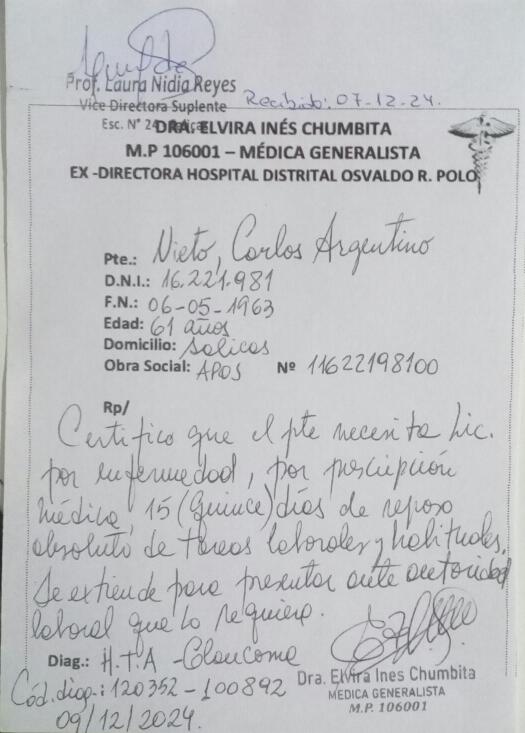 Prof. Laura Nidia Reyes
Vice Directora Suplente
Esc. N° 24
Recibido: 07-12-24.
DRA. ELVIRA INÉS CHUMBITA
M.P 106001 – MÉDICA GENERALISTA
EX -DIRECTORA HOSPITAL DISTRITAL OSVALDO R. POLO
Pte.: Nieto, Carlos Argentino
D.N.I.: 16.221.981
F.N.: 06-05-1963
Edad: 61 años
Domicilio: Salicas
Obra Social: APOS Nº 11622198100
Rp/
Certifico que el pte necesita Lic.
por enfermedad, por prescripción
médica, 15 (Quince) días de reposo
absoluto de tareas laborales y habituales.
Se extiende para presentar ante autoridad
laboral que lo requiera.
Diag.: H.T.A - Glaucoma
Cód. diag.: 120352 - 100892
09/12/2024.
Dra. Elvira Ines Chumbita
MÉDICA GENERALISTA
M.P. 106001